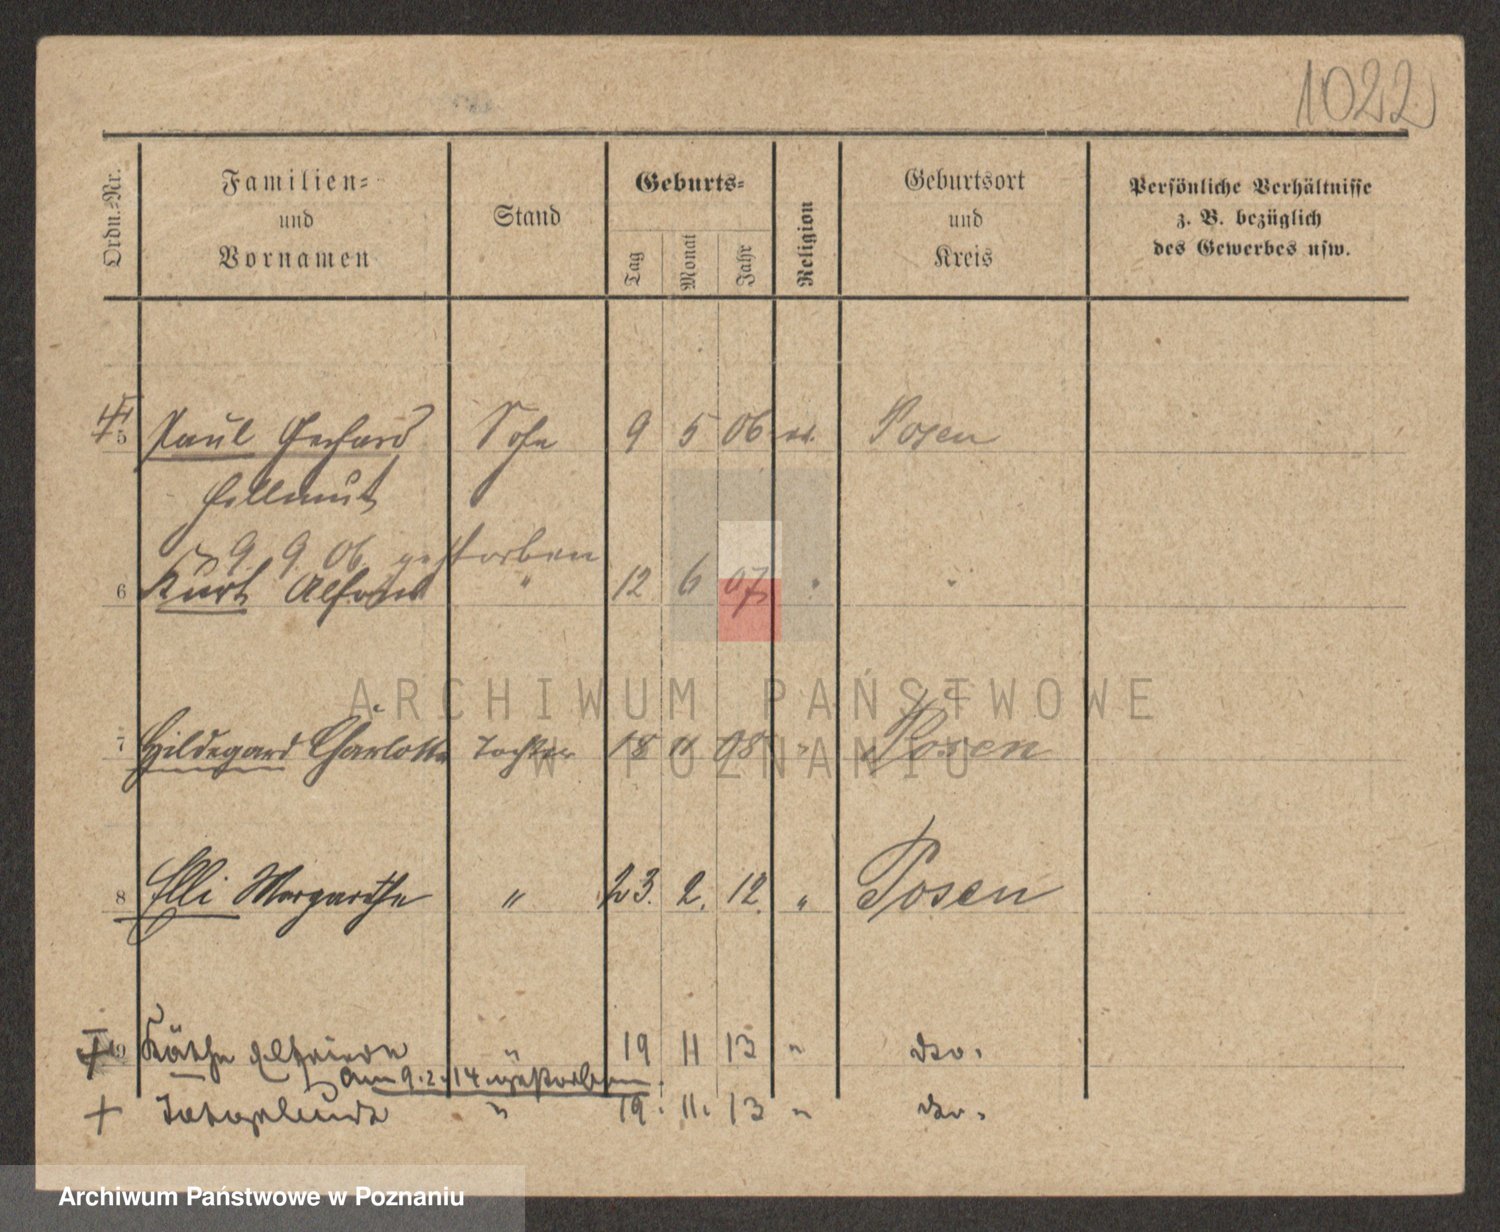 1022
Ordn.-Nr.
Familien-
und
Vornamen
Stand
Geburts-
Tag
Monat
Jahr
Religion
Geburtsort
und
Kreis
Persönliche Verhältnisse
z. B. bezüglich
des Gewerbes usw.
5 Paul Gerhard Sohn 9 5 06 Posen
Hellmut
9. 9. 06. gestorben
6 Kurt Alfons " 12 6 07 " "
7 Hildegard Charlotte Tochter 18 11 08 " Posen
8 Elli Margarethe " 23. 2. 12. " Posen
9 Käthe Elfriede " 19 11 13 " do.
am 9.2.14 gestorben
+ Totgeburt " 19. 11. 13 " do.
ARCHIWUM PAŃSTWOWE
W POZNANIU
Archiwum Państwowe w Poznaniu